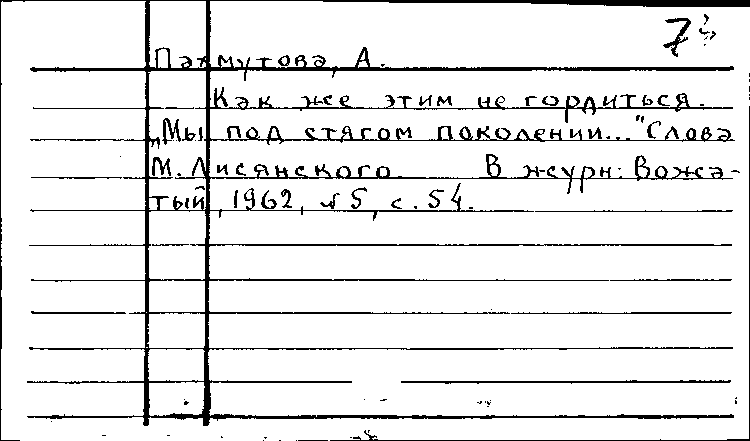 7
Пахмутова, А.
Как же этим не гордиться.
„Мы под стягом поколений..." Слова
М. Лисянского. В журн: Вожа-
тый, 1962, №5, с. 54.